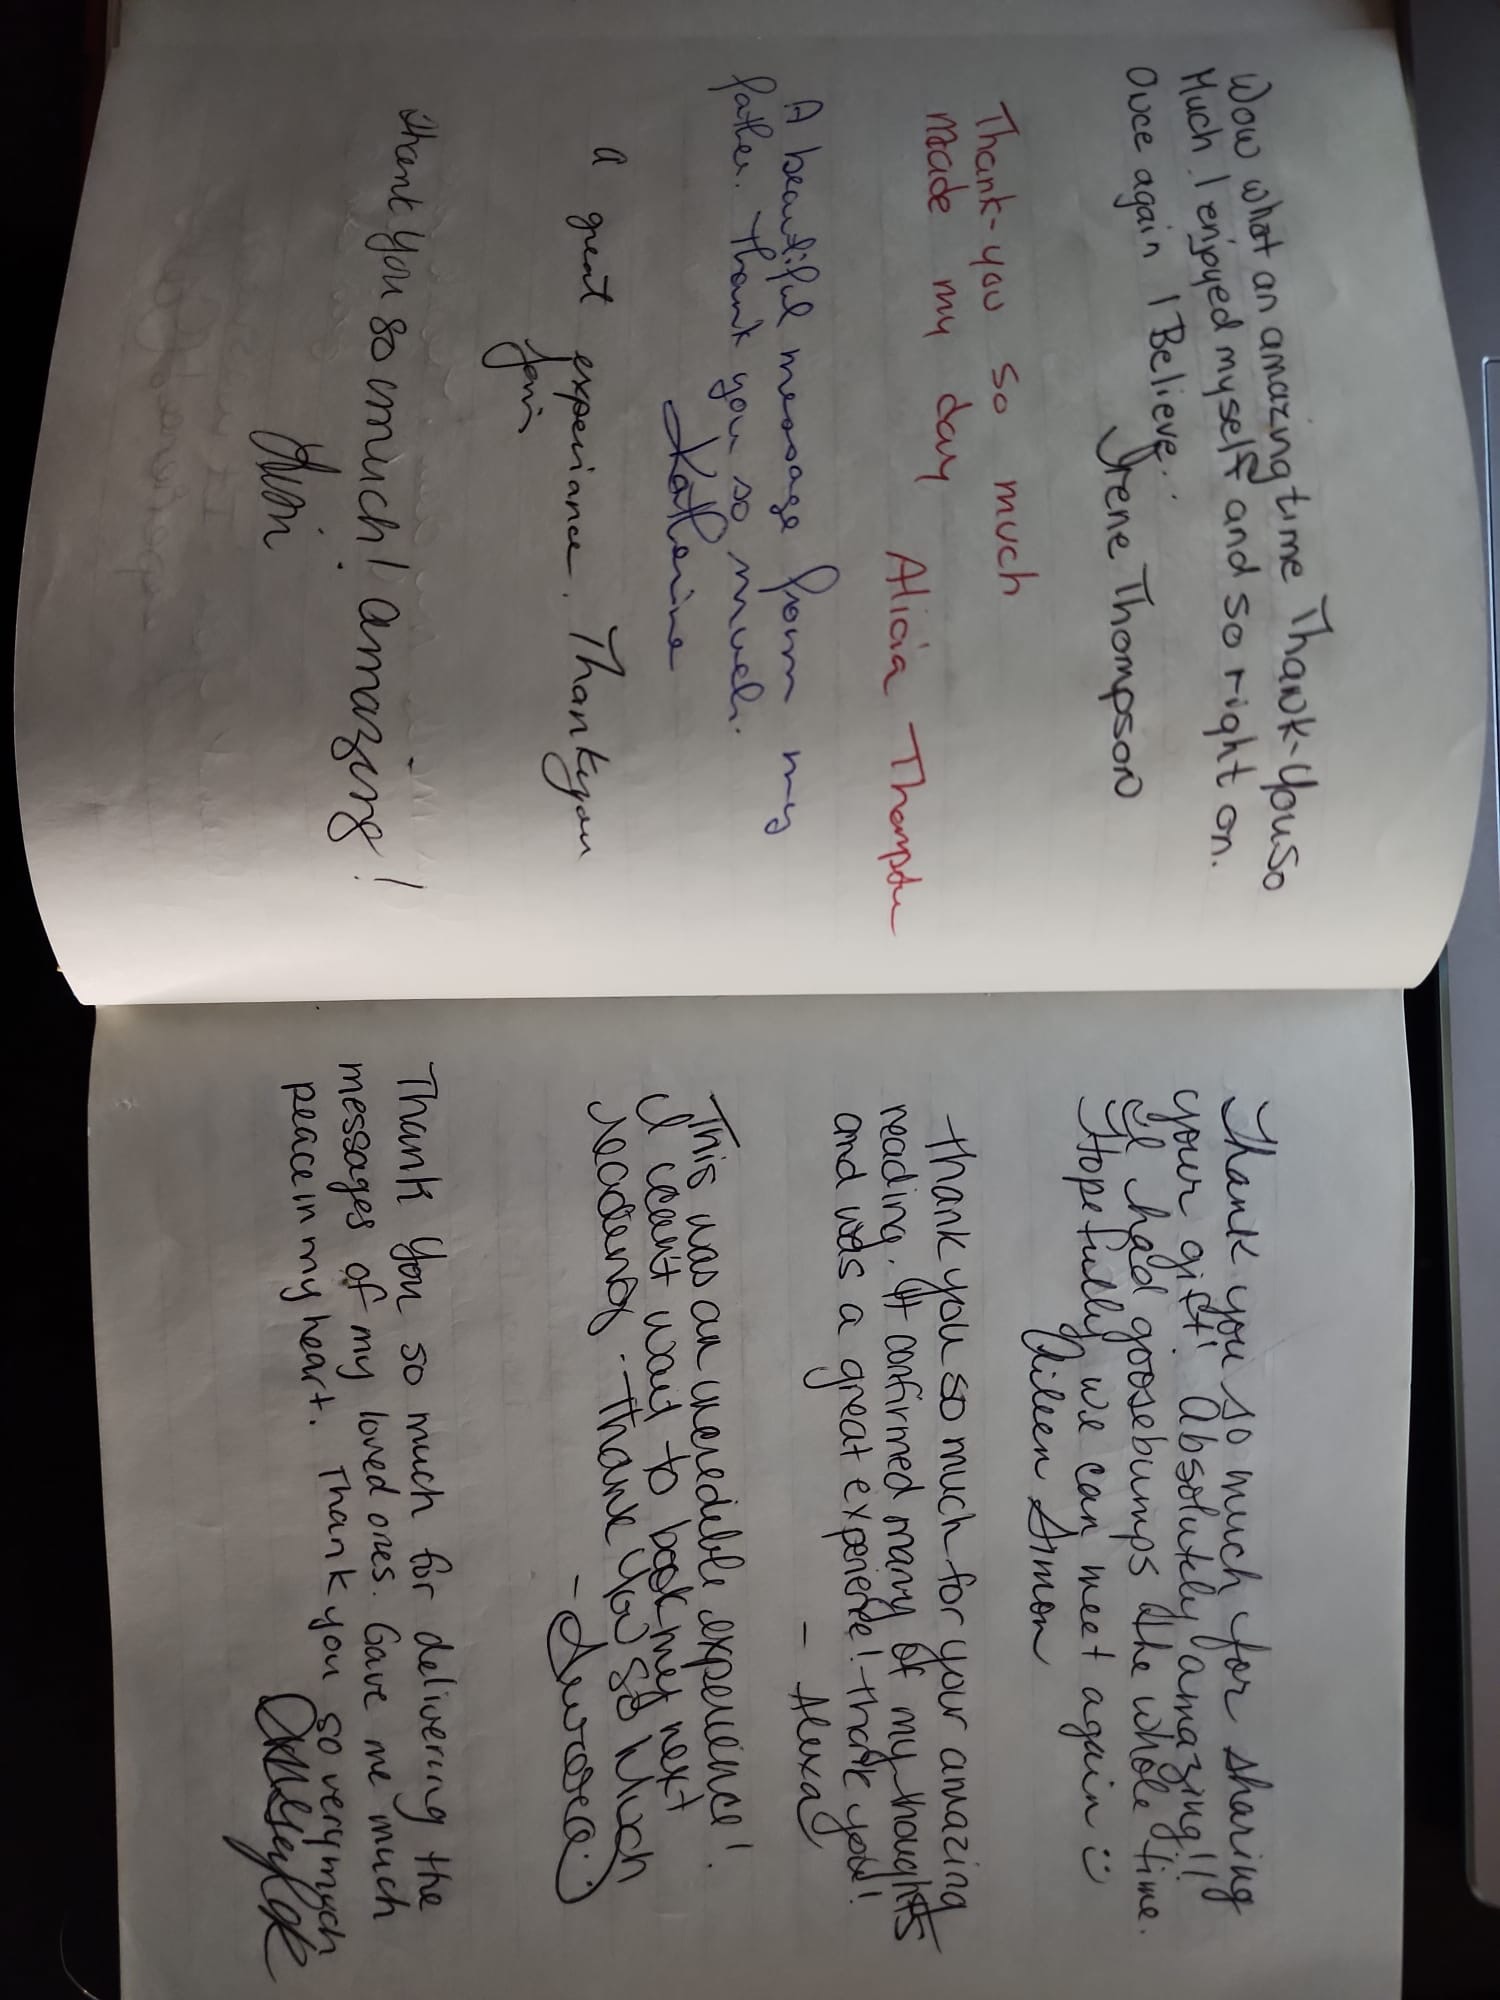 Wow what an amazing time Thank-you so
Much. I enjoyed myself and so right on.
Once again I Believe..
Irene Thompson
Thank-you so much
made my day Alicia Thompson
A beautiful message from my
father. Thank you so much.
Katherine
a great experiance. Thankyou
Thank you so much! amazing!
Thank you so much for sharing
your gift! Absolutely amazing!!
I had goosebumps the whole time.
Hopefully we can meet again :)
Eileen Simon
Thank you so much for your amazing
reading. It confirmed many of my thoughts
and was a great experience! Thank you!
- Alexa
This was an incredible experience!
I can't wait to book my next
reading. Thank you so much
Thank you so much for delivering the
messages of my loved ones. Gave me much
peace in my heart. Thank you so very much